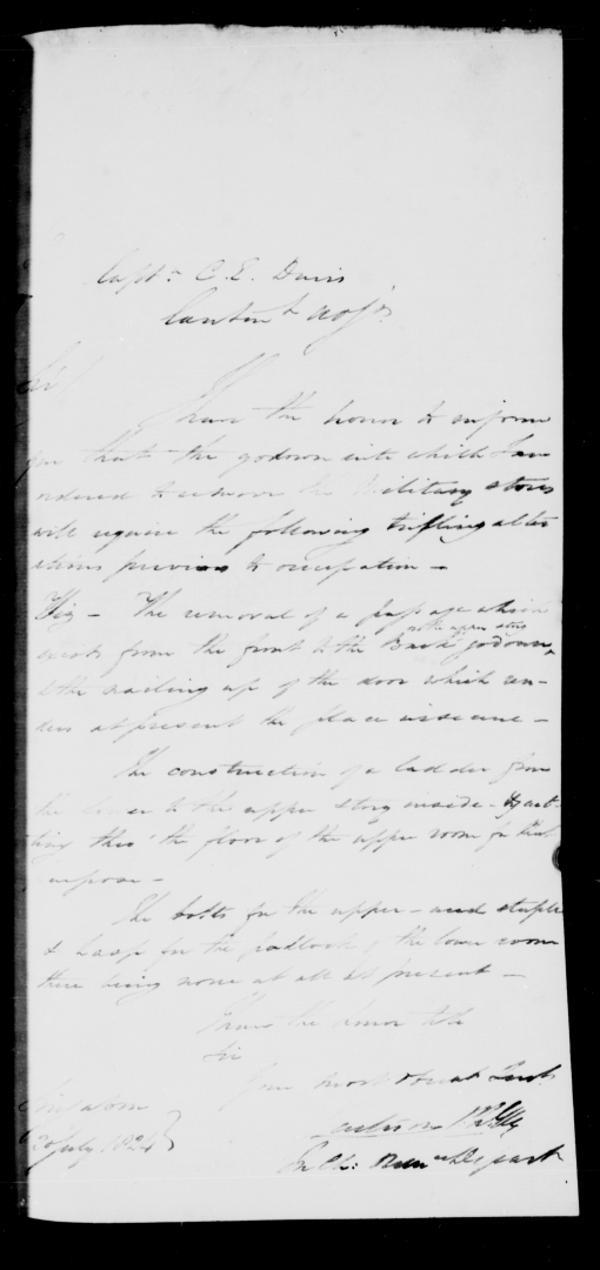 Capt.n C. E. Davis
Canton.t Adj.t
Sir
I have the honor to inform
you that the godown into which I am
ordered to remove the Military stores
will require the following trifling alter
ations previous to occupation —
Viz — The removal of a passage which
exists from the front to the Back godown
in the upper story
& the nailing up of the door which ren-
ders at present the place insecure —
The construction of a ladder from
the lower to the upper story inside - & cut-
ting thro' the floor of the upper room for that
purpose —
The bolts for the upper - and staple
& hasp for the padlock of the lower room
there being none at all at present —
I have the honor to be
Sir
Your most obed.t Serv.t
Singapore
July 1824
in Ch: